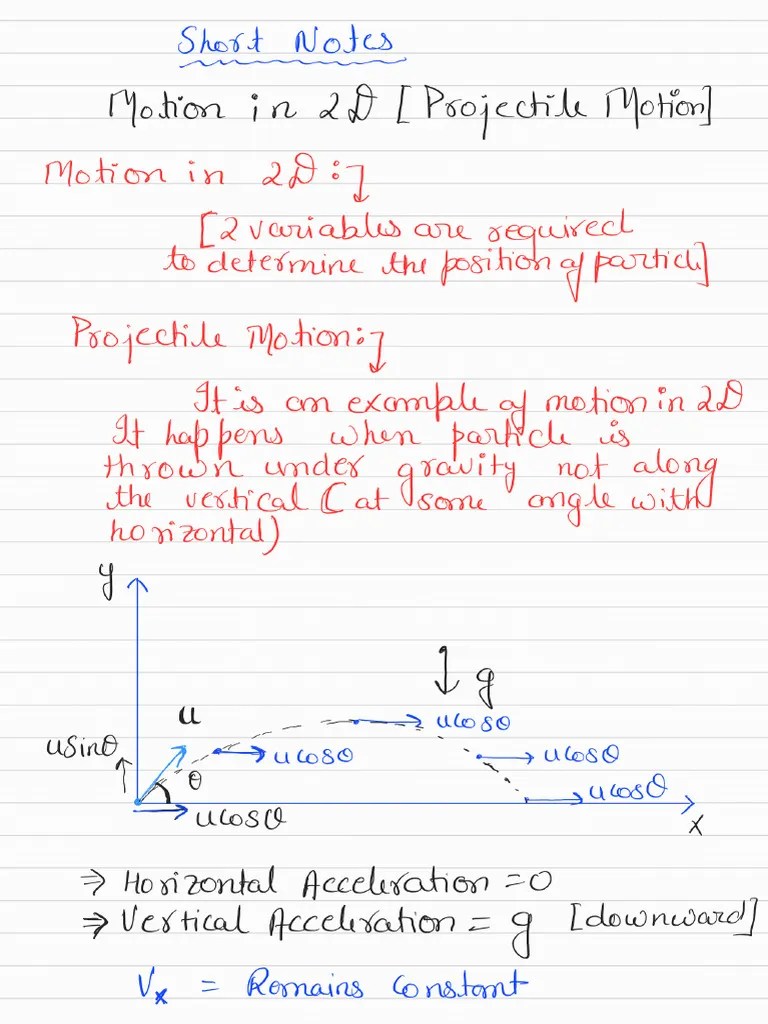 Short Notes
Motion in 2D [Projectile Motion]
Motion in 2D :
[2 variables are required
to determine the position of particle]
Projectile Motion:
It is an example of motion in 2D
It happens when particle is
thrown under gravity not along
the vertical (at some angle with
horizontal)
y
g
u
ucosθ
usinθ
ucosθ
ucosθ
θ
ucosθ
ucosθ
x
⇒ Horizontal Acceleration = 0
⇒ Vertical Acceleration = g [downward]
Vx = Remains Constant